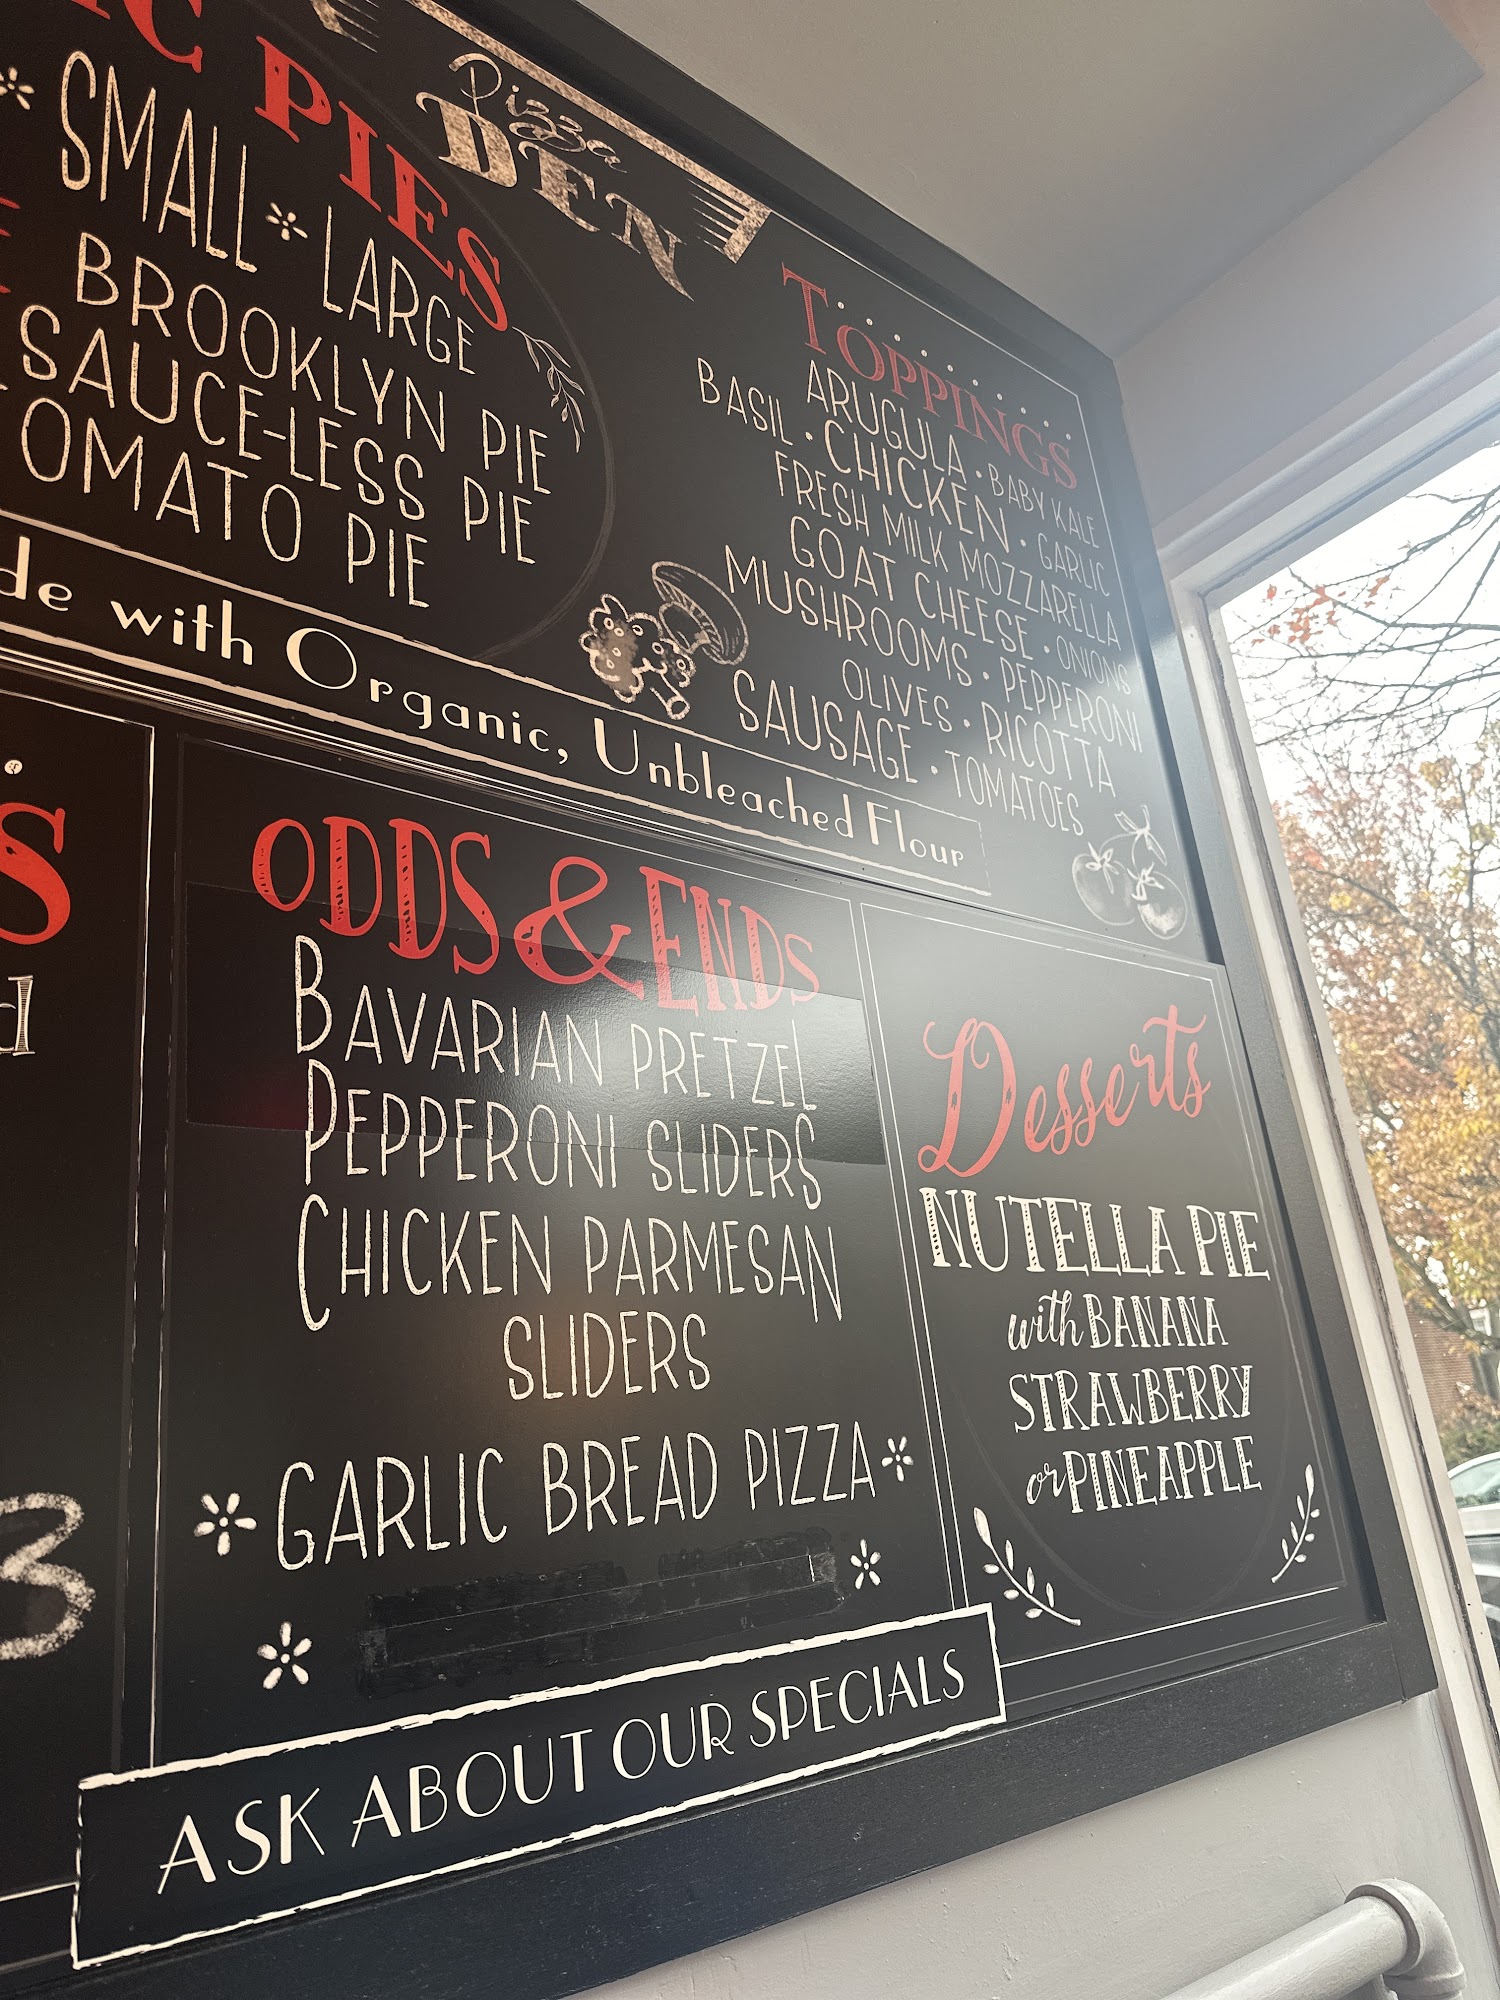 PIES
SMALL LARGE
BROOKLYN PIE
SAUCE-LESS PIE
OMATO PIE
Pizza
DEN
de with Organic, Unbleached Flour
TOPPINGS
ARUGULA · BABY KALE
BASIL · CHICKEN · GARLIC
FRESH MILK MOZZARELLA
GOAT CHEESE · ONIONS
MUSHROOMS · PEPPERONI
OLIVES · RICOTTA
SAUSAGE · TOMATOES
S
d
3
ODDS & ENDS
BAVARIAN PRETZEL
PEPPERONI SLIDERS
CHICKEN PARMESAN
SLIDERS
GARLIC BREAD PIZZA
Desserts
NUTELLA PIE
with BANANA
STRAWBERRY
or PINEAPPLE
ASK ABOUT OUR SPECIALS